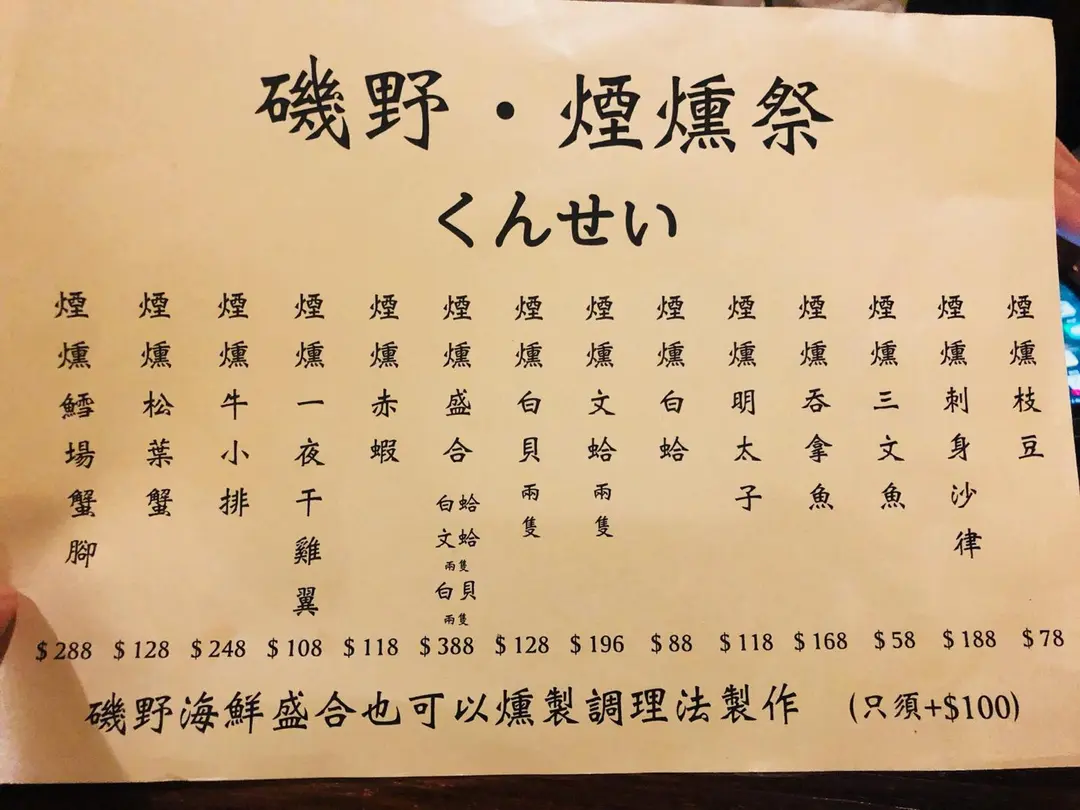 磯野・煙燻祭
くんせい
煙燻枝豆
煙燻刺身沙律
煙燻三文魚
煙燻吞拿魚
煙燻明太子
煙燻白蛤
煙燻文蛤兩隻
煙燻白貝兩隻
煙燻盛合
白蛤
文蛤
兩隻
白貝
兩隻
煙燻赤蝦
煙燻一夜干雞翼
煙燻牛小排
煙燻松葉蟹
煙燻鱈場蟹腳
$288 $128 $248 $108 $118 $388 $128 $196 $88 $118 $168 $58 $188 $78
磯野海鮮盛合也可以燻製調理法製作 (只須+$100)